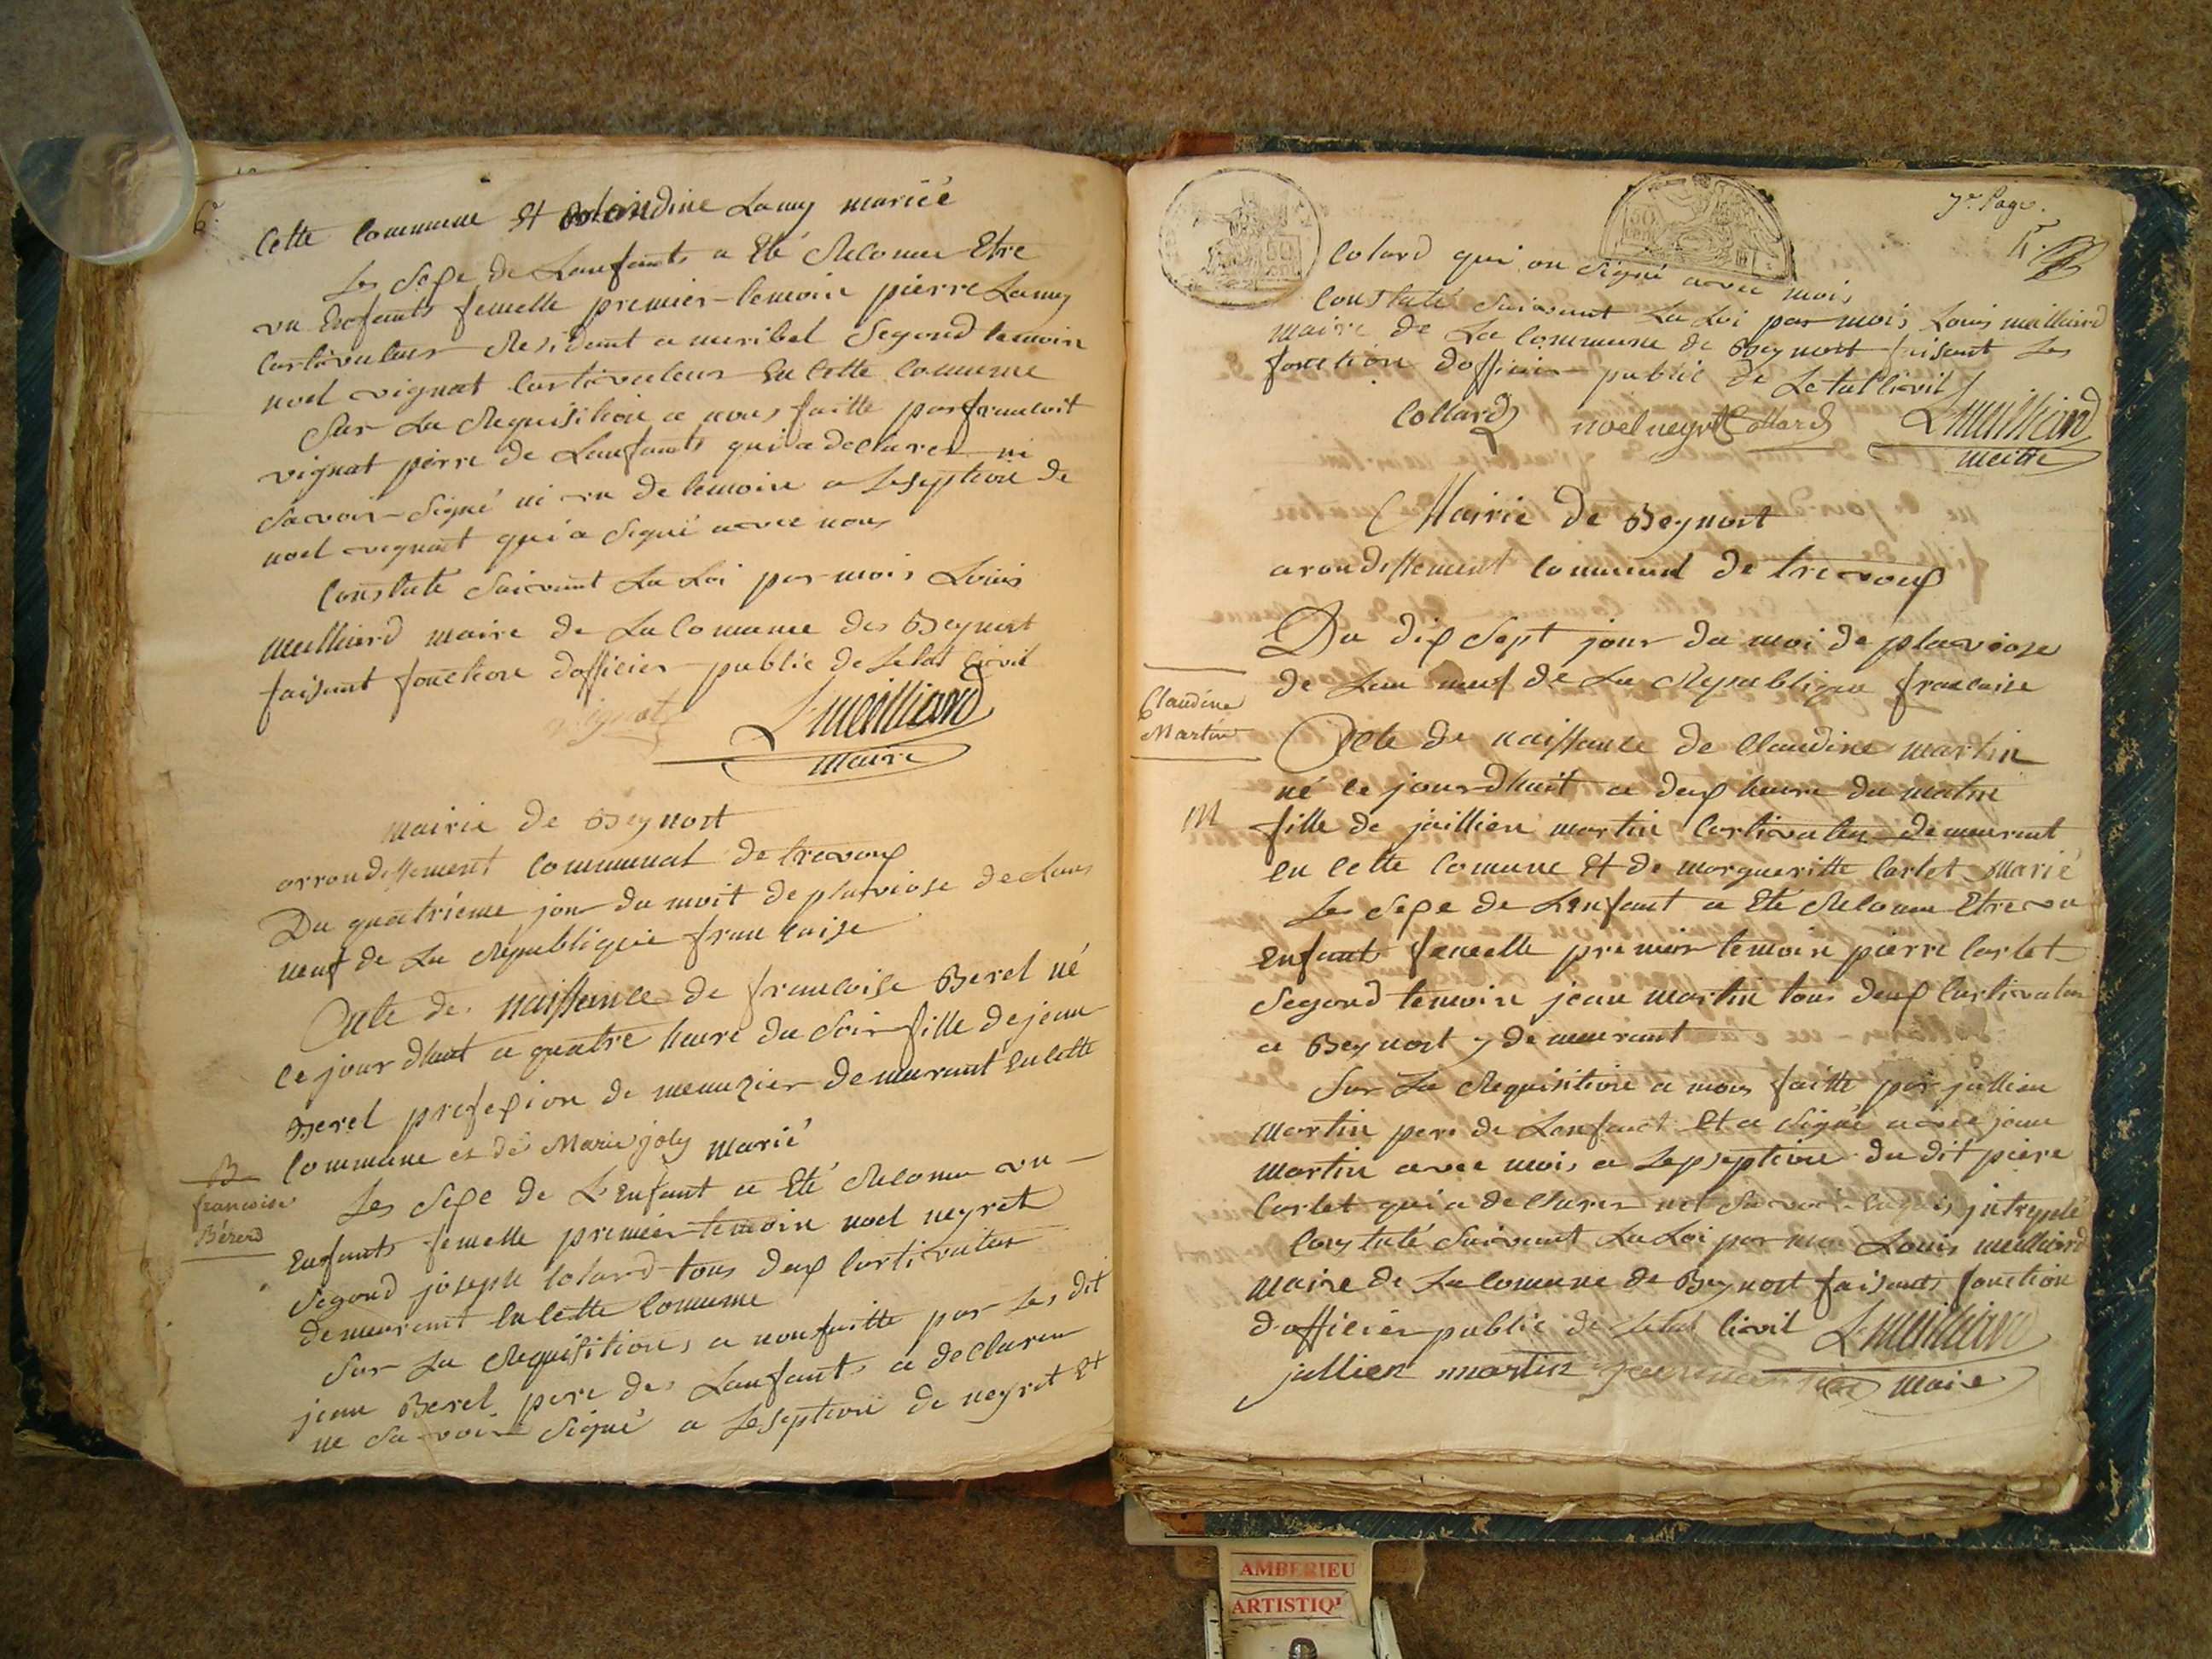 6e
Cette Commune Et Claudine Lamy mariée
Les Sexe de Lanfants a Eté Reconu Etre
un Enfants femelle premier temoin pierre Lamy
Cortivateur Resident a miribel Segond temoin
noel vignat Cortivateur En Cette Commune
Sur La Requisition a nous faitte par francoit
vignat perre de Lanfants qui a declarer ni
Savoir Signé ni un de temoin a Lesseption de
noel vignat qui a Signé avec nous
Constaté Suivant La Loi par mois Louis
meilliard maire de La Comune des Beynost
faisant fonction dofficier public de Letat Civil
vignat L meilliard
maire
mairie de Beynost
arrondissement Communal de trevoux
Du quatriéme jour du moit de pluviose de Lans
neuf de La Republiquie francaise
Acte de naissance de francoise Berel né
ce jourdhuit a quatre heure du Soir fille de jean
Berel profesion de menuzier demeurant En Cette
Commune et de Marie joly marié
B
francoise
Bérerd
Les Sexe de L'Enfant a Eté Reconu un
Enfants femelle premier temoin noel neyret
Segond joseph Colard tous deux Cortivateur
demeurant En Cette Comune
Sur La Requisition a nous faitte par Les dit
jean Berel pere des Lanfants a declarer
ne Savoir Signé a Lesseption de neyret Et
7e Page.
Colard qui on Signé avec mois
Constaté Suivant La Loi par mois Louis meilliard
maire de La Commune de Beynost faisant Les
fonction dofficier public de Letat Civil
Collard noel neyret Collard L meilliard
maire
Mairie de Beynost
arondissement Communal de trevoux
Du dix Sept jour du moi de pluviose
de Lan neuf de La Republique francaise
Claudine
Martin
Acte de naissance de Claudine martin
né ce jourdhuit a deux heure du matin
M
fille de jaillien martin Cortivateur demeurant
En Cette Comune Et de margueritte Carlet Marié
Les Sexe de Lenfant a Eté Reconu Etre un
Enfant femelle premier temoin pierre Carlet
Segond temoin jean martin tous deux Cortivateur
a Beynost y demeurant
Sur La Requisition a nous faitte par jullien
martin pere de Lenfant Et a Signé avec jean
martin avec mois a Lepseption du dit piere
Carlet qui a declarer
Constaté Suivant La Loi par moi Louis meilliard
Maire de La Comune de Beynost faisants fonction
d'officier public de Letat Civil L meilliard
jullien martin jean martin maire
AMBERIEU
ARTISTIQ